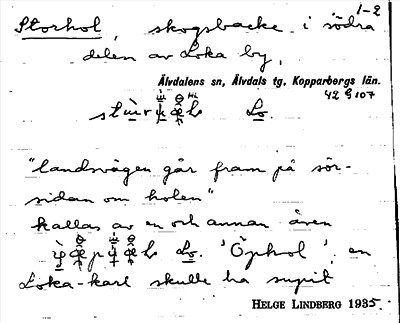 1-2
Storhol, skogsbacke i södra
delen av Loka by,
Älvdalens sn, Älvdals tg, Kopparbergs län.
42 G 107
Lo.
"landsvägen går fram på sör-
sidan om holen"
kallas av en och annan även
Lo. 'Öpkol', en
Loka-karl skulle ha supit
HELGE LINDBERG 1935.